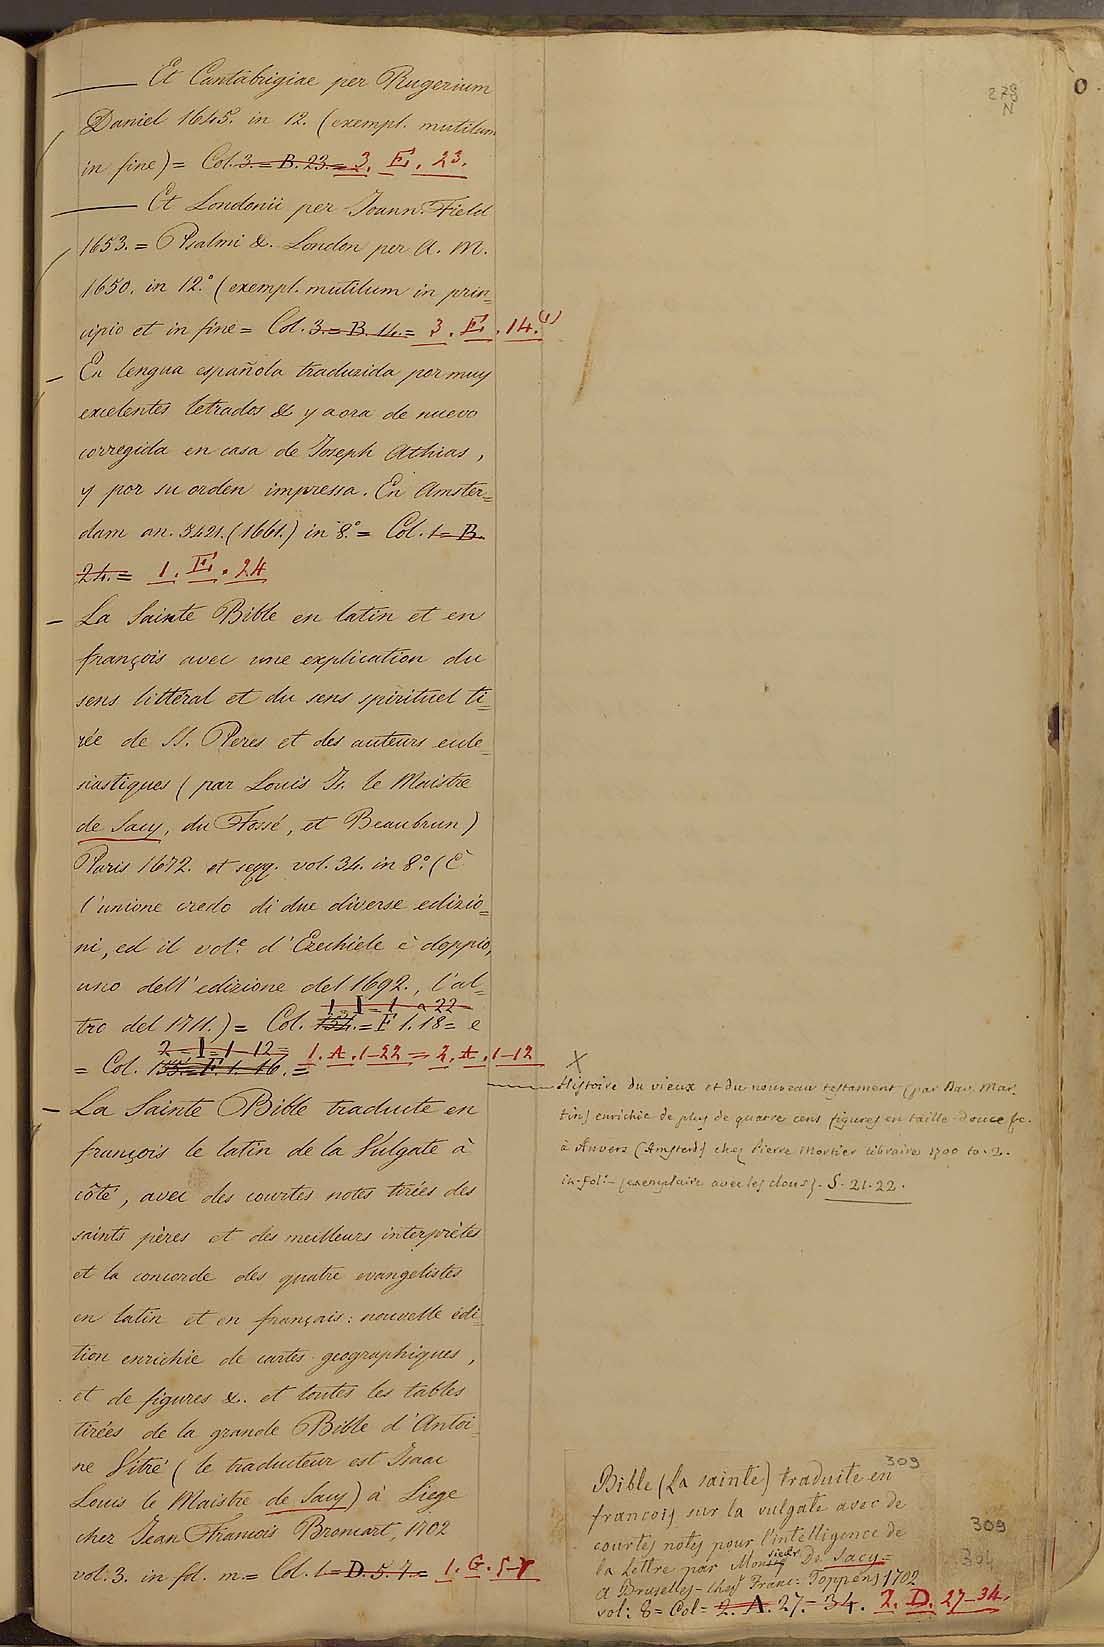 278
N
O.
— Et Cantabrigiae per Rugerium
Daniel 1645. in 12. (exempl. mutilum
in fine) = Col. 3. = B. 23. = 3. E. 23.
— Et Londonii per Joann. Field
1653. = Psalmi &. London per A. M.
1650. in 12.° (exempl. mutilum in prin=
cipio et in fine = Col. 3. = B. 14. = 3. E. 14.(1)
— En lengua española traduzida por muy
excelentes letrados & y aora de nuevo
corregida en casa de Joseph Athias,
y por su orden impressa. En Amster=
dam an. 5421. (1661.) in 8.° = Col. 1 = B.
24. = 1. E. 24
— La Sainte Bible en latin et en
françois avec une explication du
sens littéral et du sens spirituel ti=
rée de SS. Peres et des auteurs eccle=
siastiques (par Louis Is. le Maistre
de Sacy, du Fossé, et Beaubrun)
Paris 1672. et seqq. vol. 34. in 8.° (È
l'unione credo di due diverse edizio=
ni, ed il vol.e d'Ezechiele è doppio,
uno dell'edizione del 1692., l'al=
1. I = 1 a 22
tro del 1711.) = Col. 154. = F 1. 18 = e
2 = I = 1 - 12 =
= Col. 155. = F. 1. 16. = 1. A. 1-22 = 2. A. 1-12
— La Sainte Bible traduite en
françois le latin de la Vulgate à
côté, avec des courtes notes tirées des
saints pères et des meilleurs interprètes
et la concorde des quatre evangelistes
en latin et en français: nouvelle édi=
tion enrichie de cartes geographiques,
et de figures &. et toutes les tables
tirées de la grande Bible d'Antoi=
ne Vitré (le traducteur est Isaac
Louis le Maistre de Sacy) à Liege
chez Jean François Broncart, 1702
vol. 3. in fol. m. = Col. 1 = D. 5. 7. = 1. G. 5-7
X
Histoire du vieux et du nouveau testament (par Dav. Mar=
tin) enrichie de plus de quatre cens figures en taille-douce &c.
à Anvers (Amsterd) chez Pierre Mortier libraire 1700 to. 2.
in-fol. - (exemplaire avec les clous). S. 21. 22.
309
Bible (La sainte) traduite en
francois sur la vulgate avec de
courtes notes pour l'intelligence de
la Lettre par Monsieur De Sacy =
A Bruselles - Chez Franc: Foppens 1702
vol: 8 = Col = 2. A. 27. = 34. 2. D. 27-34.
309
304